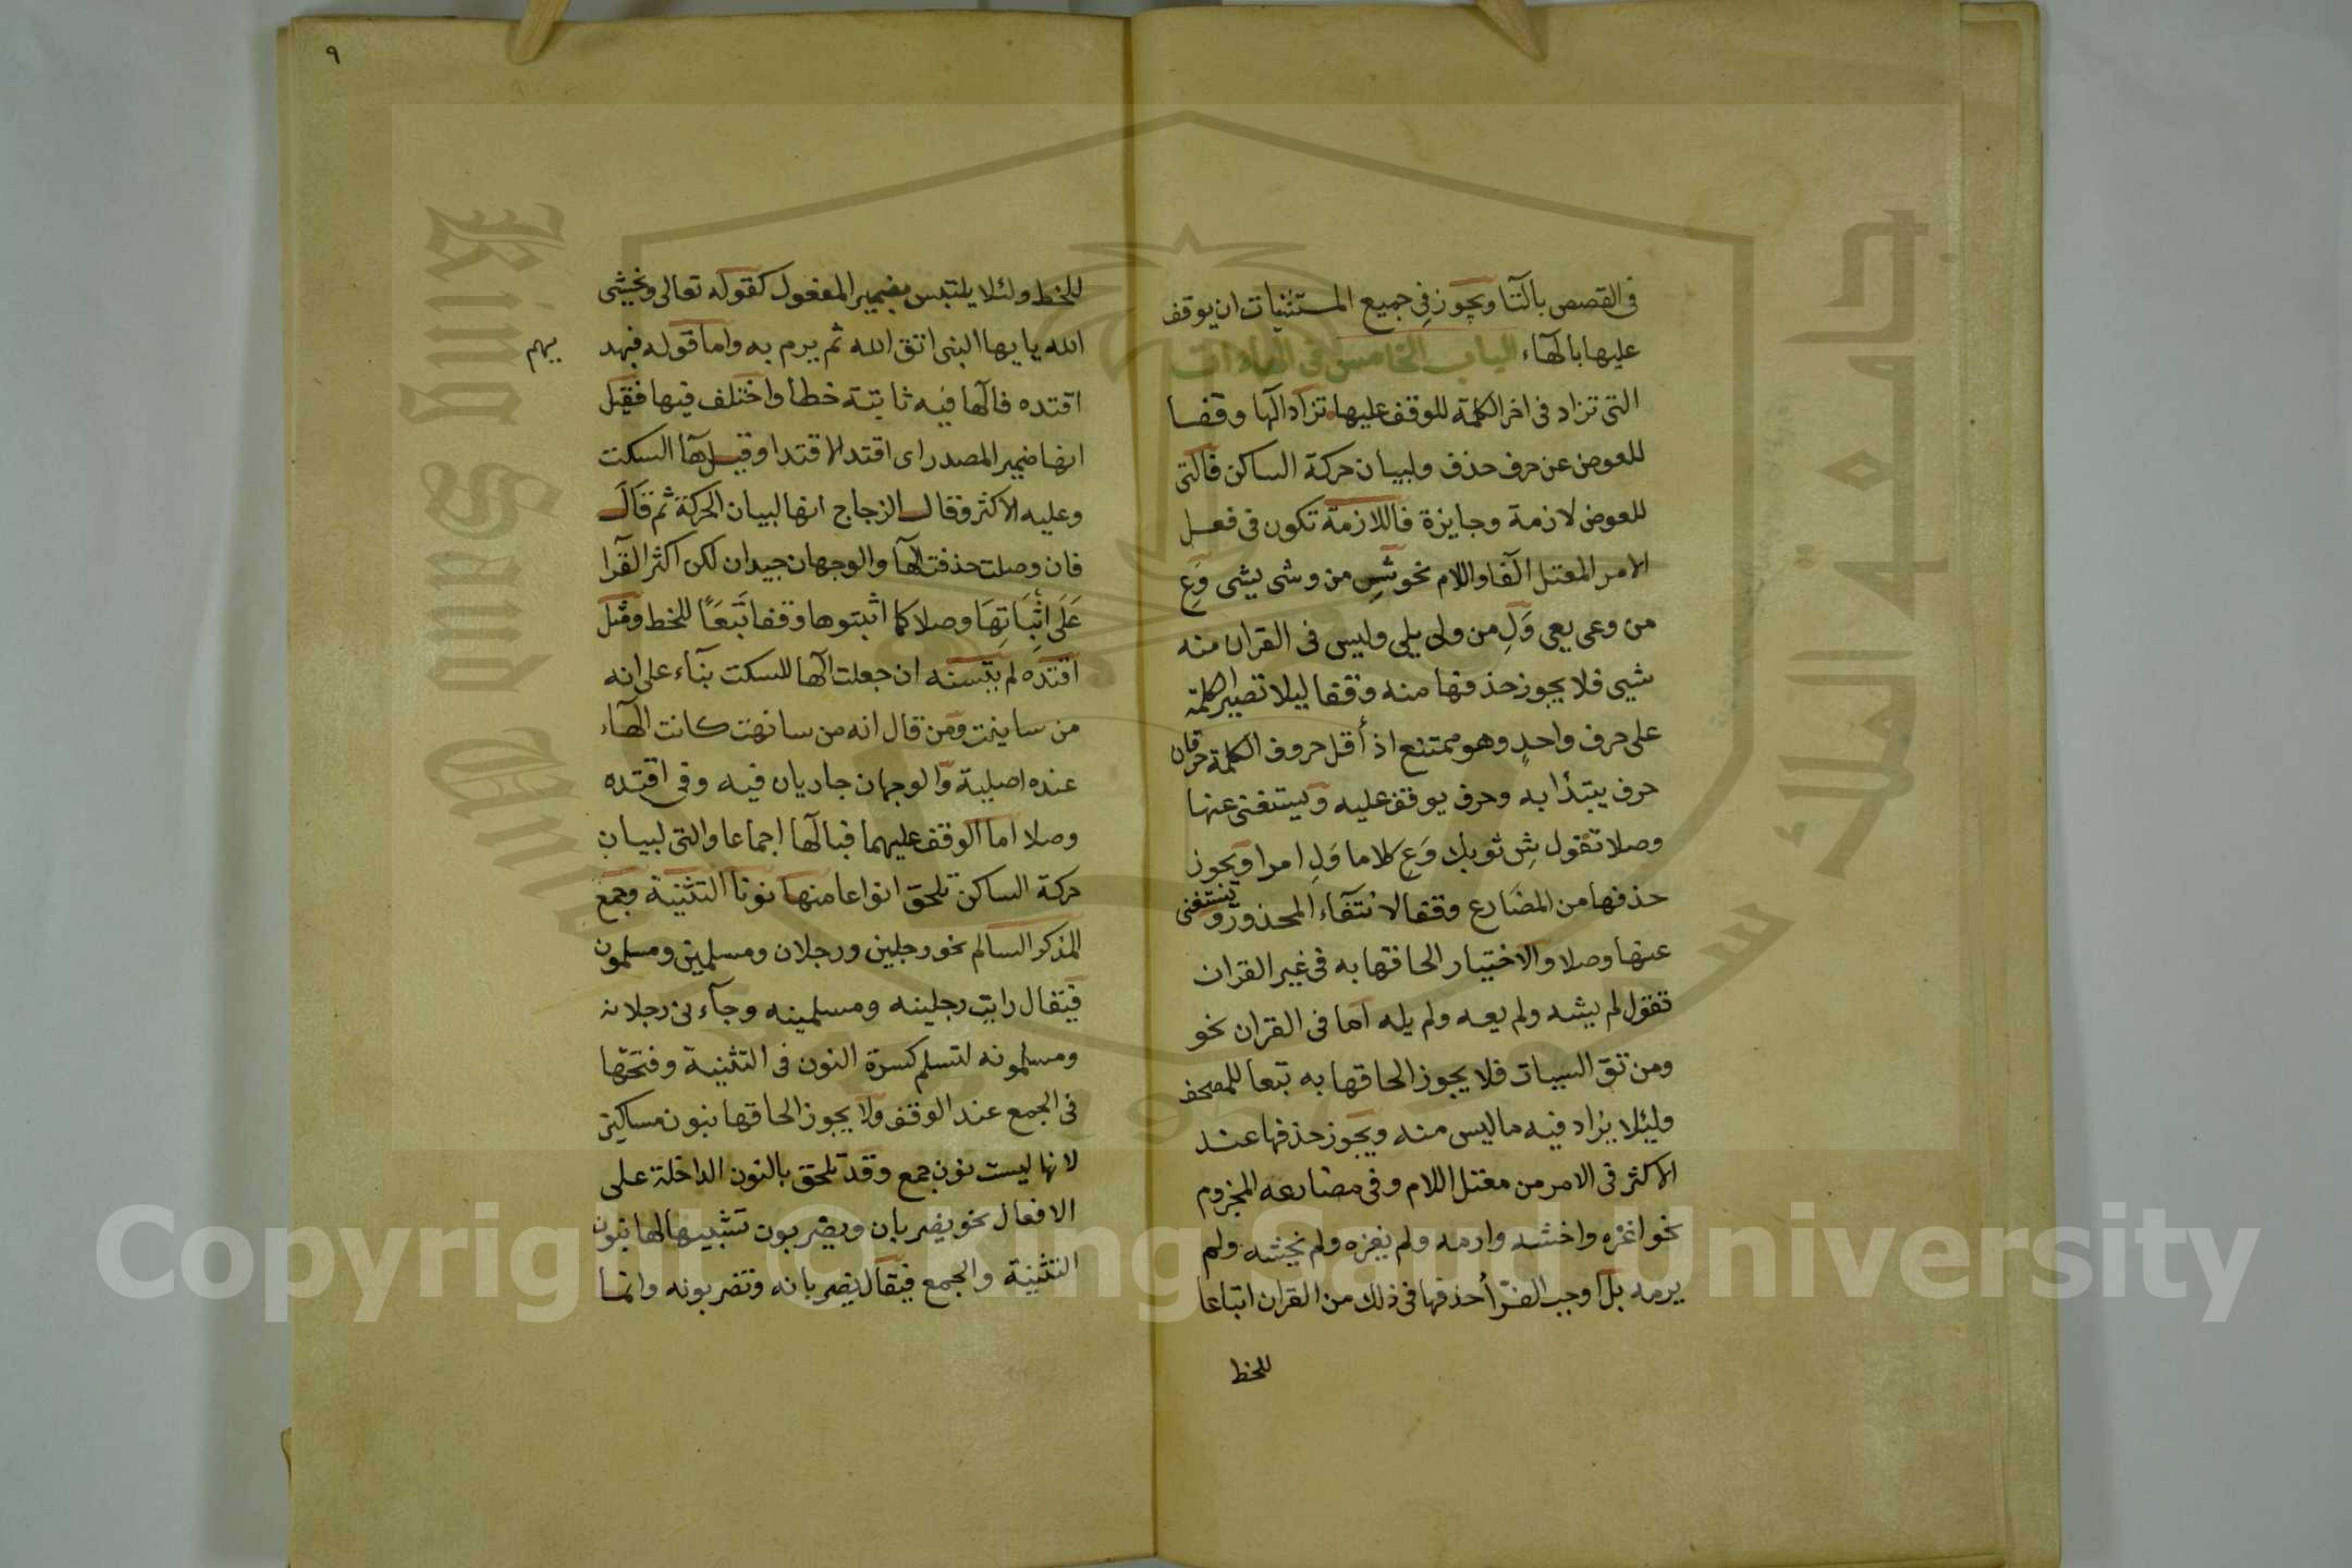 فى القصص بالتا ويجوز فى جميع المستثنيات ان يوقف
عليها بالهاء الباب الخامس فى الهاءات
التى تزاد فى اخر الكلمة للوقف عليها تزاد الها وقفا
للعوض عن حرف حذف ولبيان حركة الساكن فالتى
للعوض لازمة وجايزة فاللازمة تكون فى فعل
الامر المعتل الفا واللام نحو شِ من وشى يشى وَعِ
من وعى يعى وَلِ من ولى يلى وليس فى القران منه
شيى فلا يجوز حذفها منه وقفا ليلا تصير الكلمة
على حرف واحدٍ وهو ممتنع اذ أقل حروف الكلمة حرفان
حرف يبتدأ به وحرف يوقف عليه ويستغنى عنها
وصلا تقول شِ ثوبك وَعِ كلاما وَلِ امرا ويجوز
حذفها من المضارع وقفا لانتفاء المحذور ويستغنى
عنها وصلا والاختيار الحاقها به فى غير القران
تقول لم يشه ولم يعه ولم يله اما فى القران نحو
ومن تق السيات فلا يجوز الحاقها به تبعا للمصحف
وليلا يزاد فيه ماليس منه ويجوز حذفها عند
الاكثر فى الامر من معتل اللام وفى مضارعه المجزوم
نحو اغزه واخشه وارمه ولم يغزه ولم يخشه ولم
يرمه بل اوجب القرّأ حذفها فى ذلك من القران اتباعا
للخط
٩
للخط ولئلا يلتبس بضمير المفعول كقوله تعالى ويخشى
الله يا يها النبى اتق الله ثم يرم به واما قوله فبهد
يهم
اقتده فالها فيه ثابتة خطا واختلف فيها فقيل
انها ضمير المصدر اى اقتد الاقتدا وقيل ها السكت
وعليه الاكثر وقال الزجاج انها لبيان الحركة ثم قال
فان وصلت حذفت الها والوجهان جيدان لكن اكثر القرا
عَلَى اثبَاتِهَا وصلا كما اثبتوها وقفا تَبَعًا للخط ومثل
اقتده لم يتسنه ان جعلت الها للسكت بناء على انه
من سانيت ومن قال انه من سانهت كانت الهاء
عنده اصلية والوجهان جاريان فيه وفى اقتده
وصلا اما الوقف عليهما فبالها اجماعا والتى لبيان
حركة الساكن تلحق انواعا منها نونا التثنية وجمع
المذكر السالم نحو رجلين ورجلان ومسلمين ومسلمون
فيقال رايت رجلينه ومسلمينه وجاءنى رجلانه
ومسلمونه لتسلم كسرة النون فى التثنية وفتحها
فى الجمع عند الوقف ولا يجوز الحاقها بنون مساكين
لانها ليست نون جمع وقد تلحق بالنون الداخلة على
الافعال نحو يضربان ويضربون تشبيها لها بنون
التثنية والجمع فيقال يضربانه وتضربونه وانما